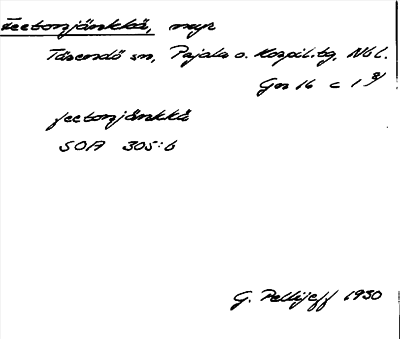 Feetonjänkkä, myr
Tärendö sn, Pajala o. Korpil. tg, Nbl.
Gen 16 c 1 3/
feetonjänkkä
SOA 305:6
G. Pellijeff 1930